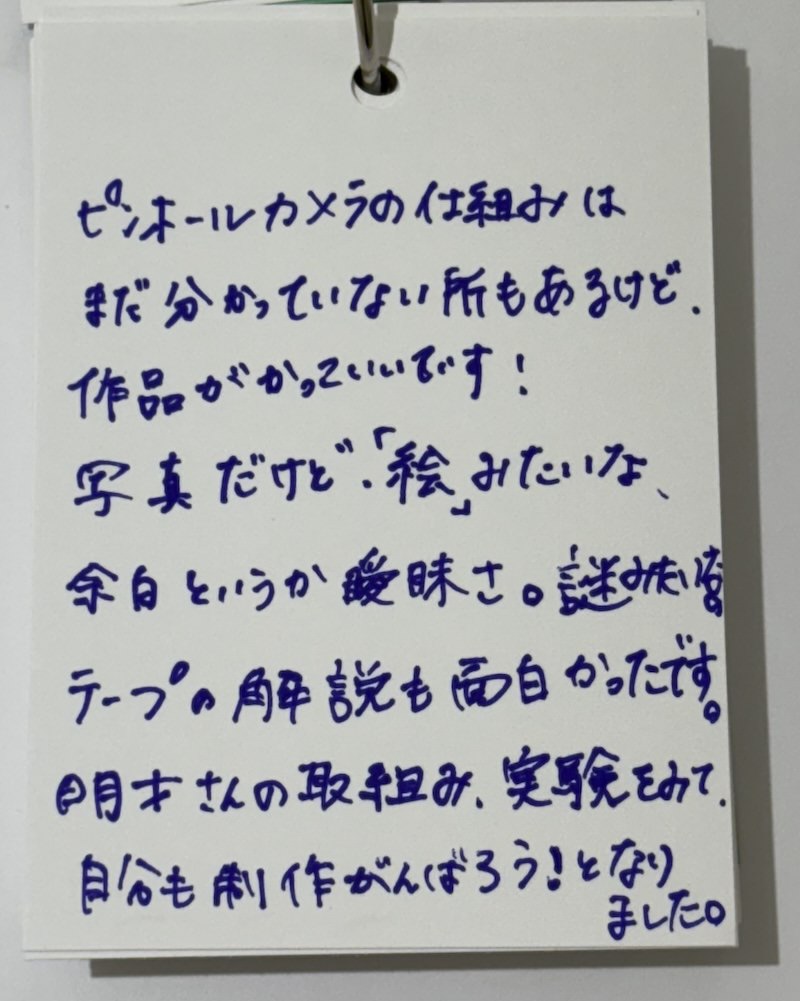 ピンホールカメラの仕組みは
まだ分かっていない所もあるけど、
作品がかっこいいです！
写真だけど、「絵」みたいな、
余白というか曖昧さ。謎みたいな
テープの解説も面白かったです。
明才さんの取組み、実験をみて、
自分も制作がんばろう！となり
ました。